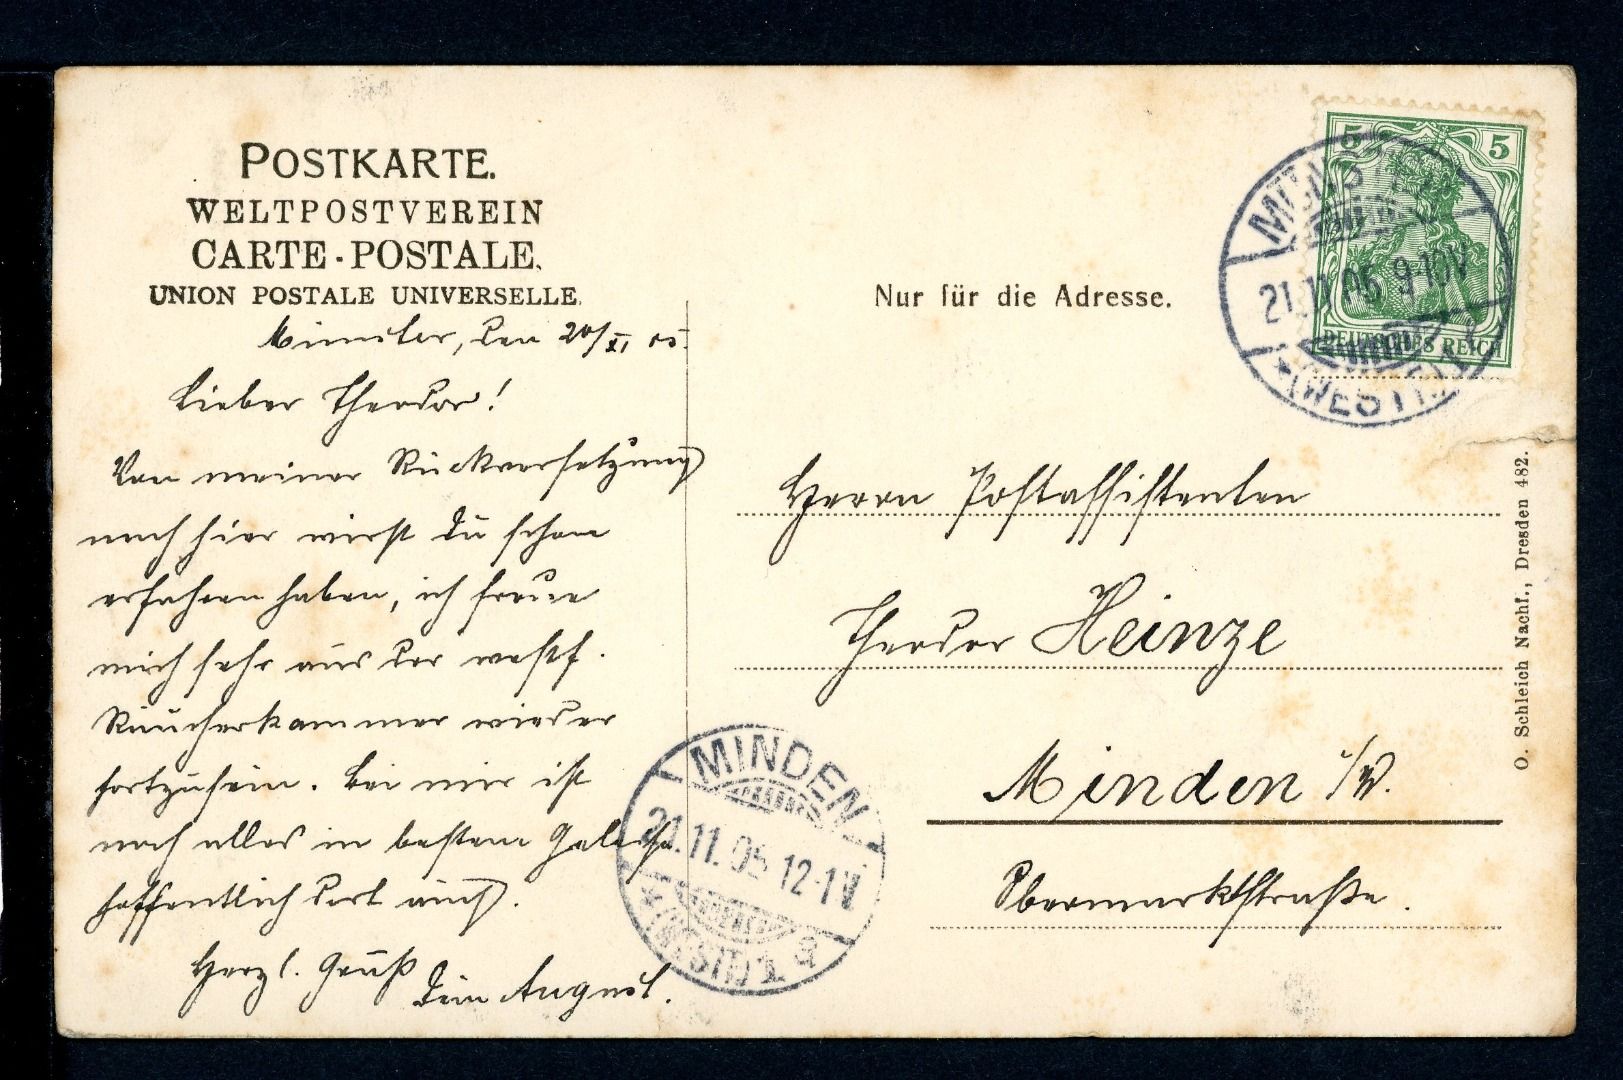 POSTKARTE.
WELTPOSTVEREIN
CARTE-POSTALE.
UNION POSTALE UNIVERSELLE.
Münster, den 20/XI 05.
Lieber Theodor!
Von meiner Rückversetzung
nach hier wirst Du schon
erfahren haben, ich freue
mich sehr aus der westf.
Räucherkammer wieder
fortzusein. Bei mir ist
noch alles in bestem Geleise
hoffentlich dort auch.
Herzl. Gruß
Dein August.
Nur für die Adresse.
5 5
DEUTSCHES REICH
MÜNSTER
21.11.05 9-10V
*(WESTF.)
Herrn Postassistenten
Theodor Heinze
Minden i/W.
Obermarktstraße.
MINDEN
21.11.05 12-1V
*(WESTF.)
O. Schleich Nachf., Dresden 482.